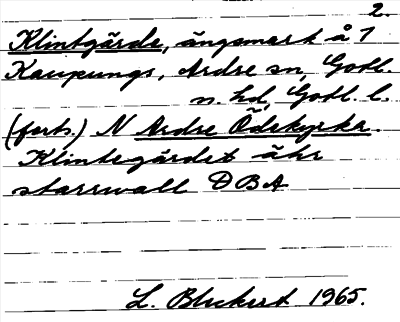 2.
Klintgärde, ängsmark å 1
Kaupungs, Ardre sn, Gotl.
n. hd, Gotl. l.
(forts.) N Ardre Ödekyrka.
Klintegärdet åhr
starrwall DBA
L. Bluckert 1965.